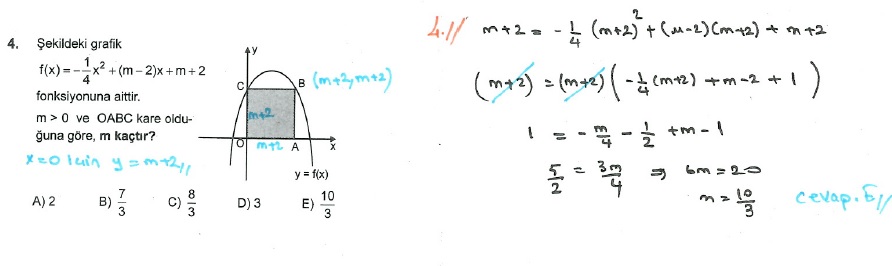 4. Şekildeki grafik
f(x) = -1/4 x² + (m – 2)x + m + 2
fonksiyonuna aittir.
m > 0 ve OABC kare oldu-
ğuna göre, m kaçtır?
x=0 için y = m+2 //
y
C
B
(m+2, m+2)
m+2
O
m+2
A
x
y = f(x)
A) 2 B) 7/3 C) 8/3 D) 3 E) 10/3
4.//
m+2 = -1/4 (m+2)² + (m-2)(m+2) + m+2
(m+2) = (m+2) ( -1/4 (m+2) + m-2 + 1 )
1 = - m/4 - 1/2 + m - 1
5/2 = 3m/4 ⇒ 6m = 20
m = 10/3
cevap. E //